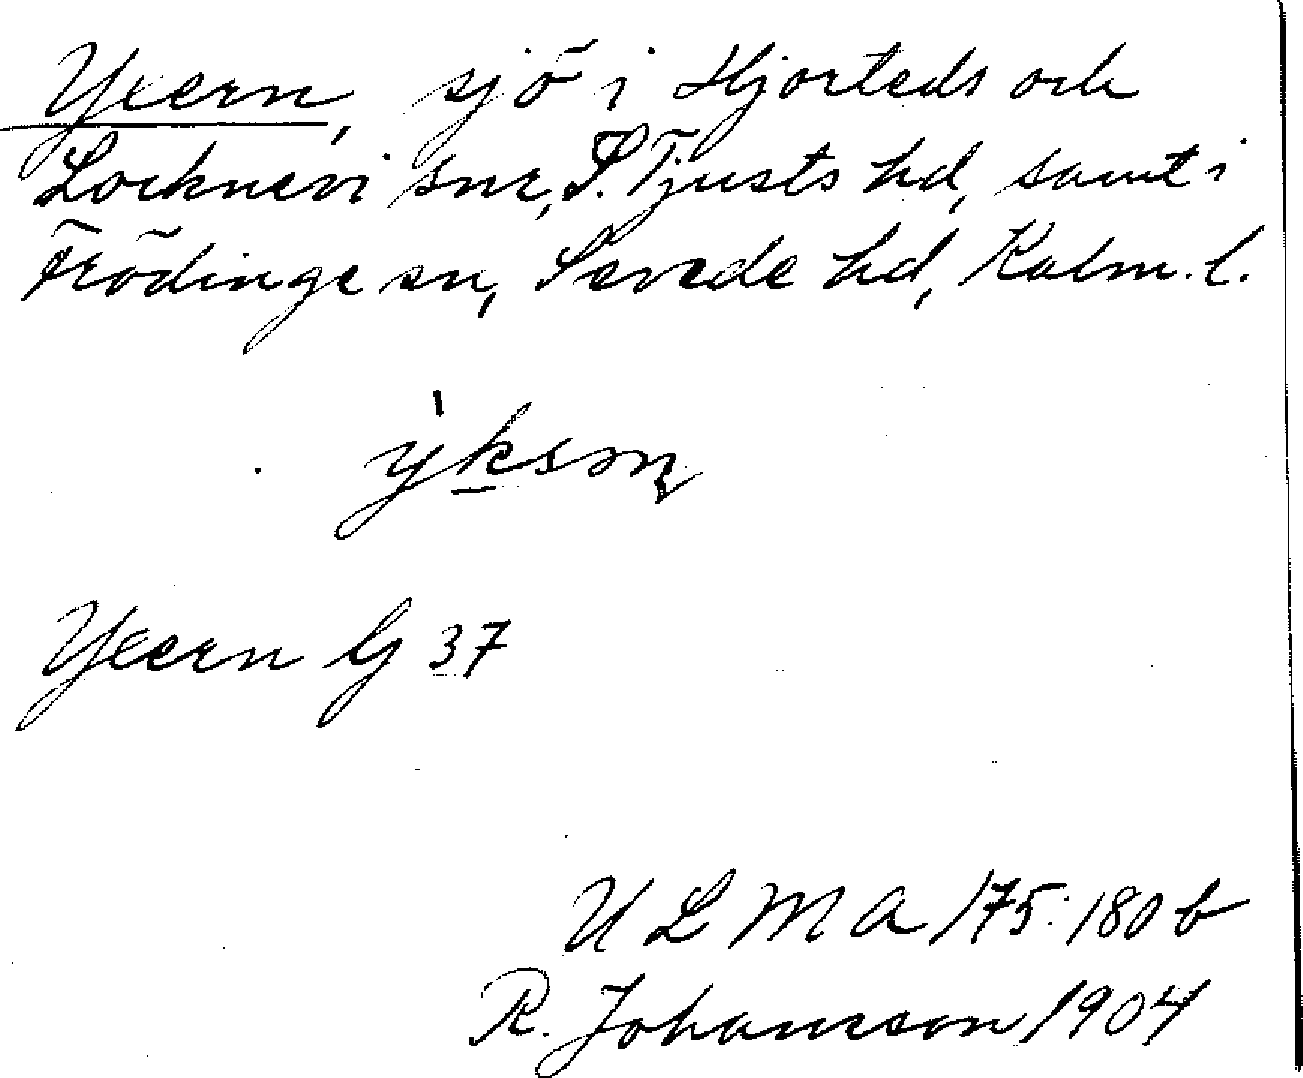 Yxern, sjö i Hjorteds och
Locknevi snr, S. Tjusts hd, samt i
Frödinge sn, Sevede hd, Kalm. l.
Yxern G 37
ULMA 175:180 b
R. Johansson 1904